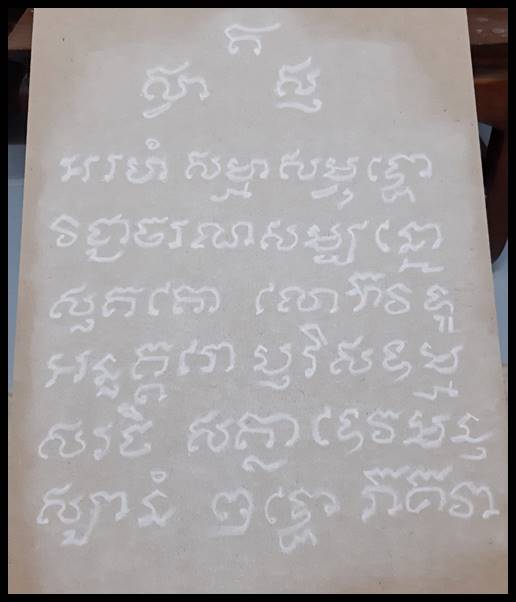 ត
ស្វា សុ
អរហំ សម្មាសម្ពុទ្ធោ
វិជ្ជាចរណសម្បន្នោ
សុគតោ លោកវិទូ
អនុត្តរោ បុរិសទម្ម
សរថិ សត្ថា ទេវមនុ
ស្សានំ ពុទ្ធោ ភគវា